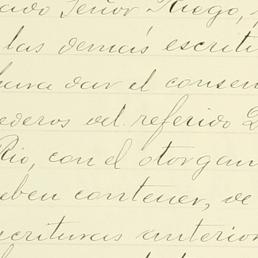 ado Señor Riego,
las demás escritu
para dar el consen
ederos del referido D
Rio, con el otorgam
eben contener, de
scrituras anterior